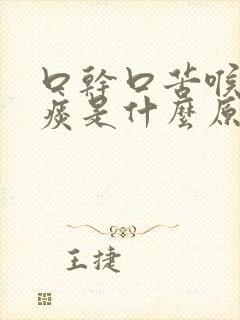 口幹口苦喉
痰是什麼原
王捷